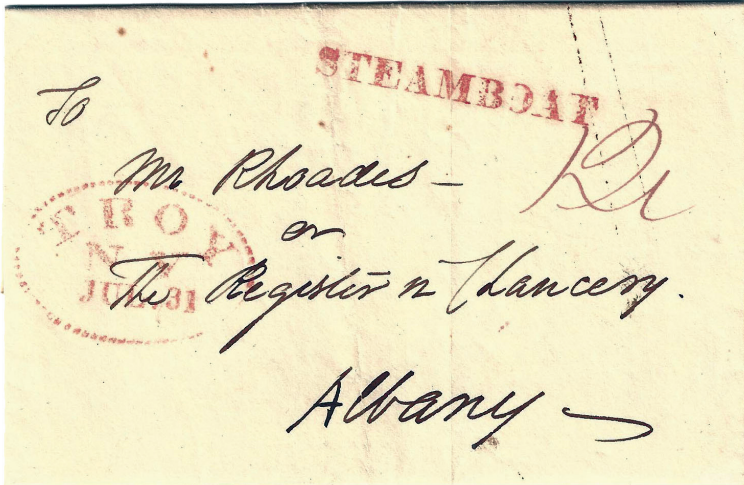 STEAMBOAT
To
Mr Rhoades —
or
The Register in Chancery.
Albany
TROY
N Y
JUL 31